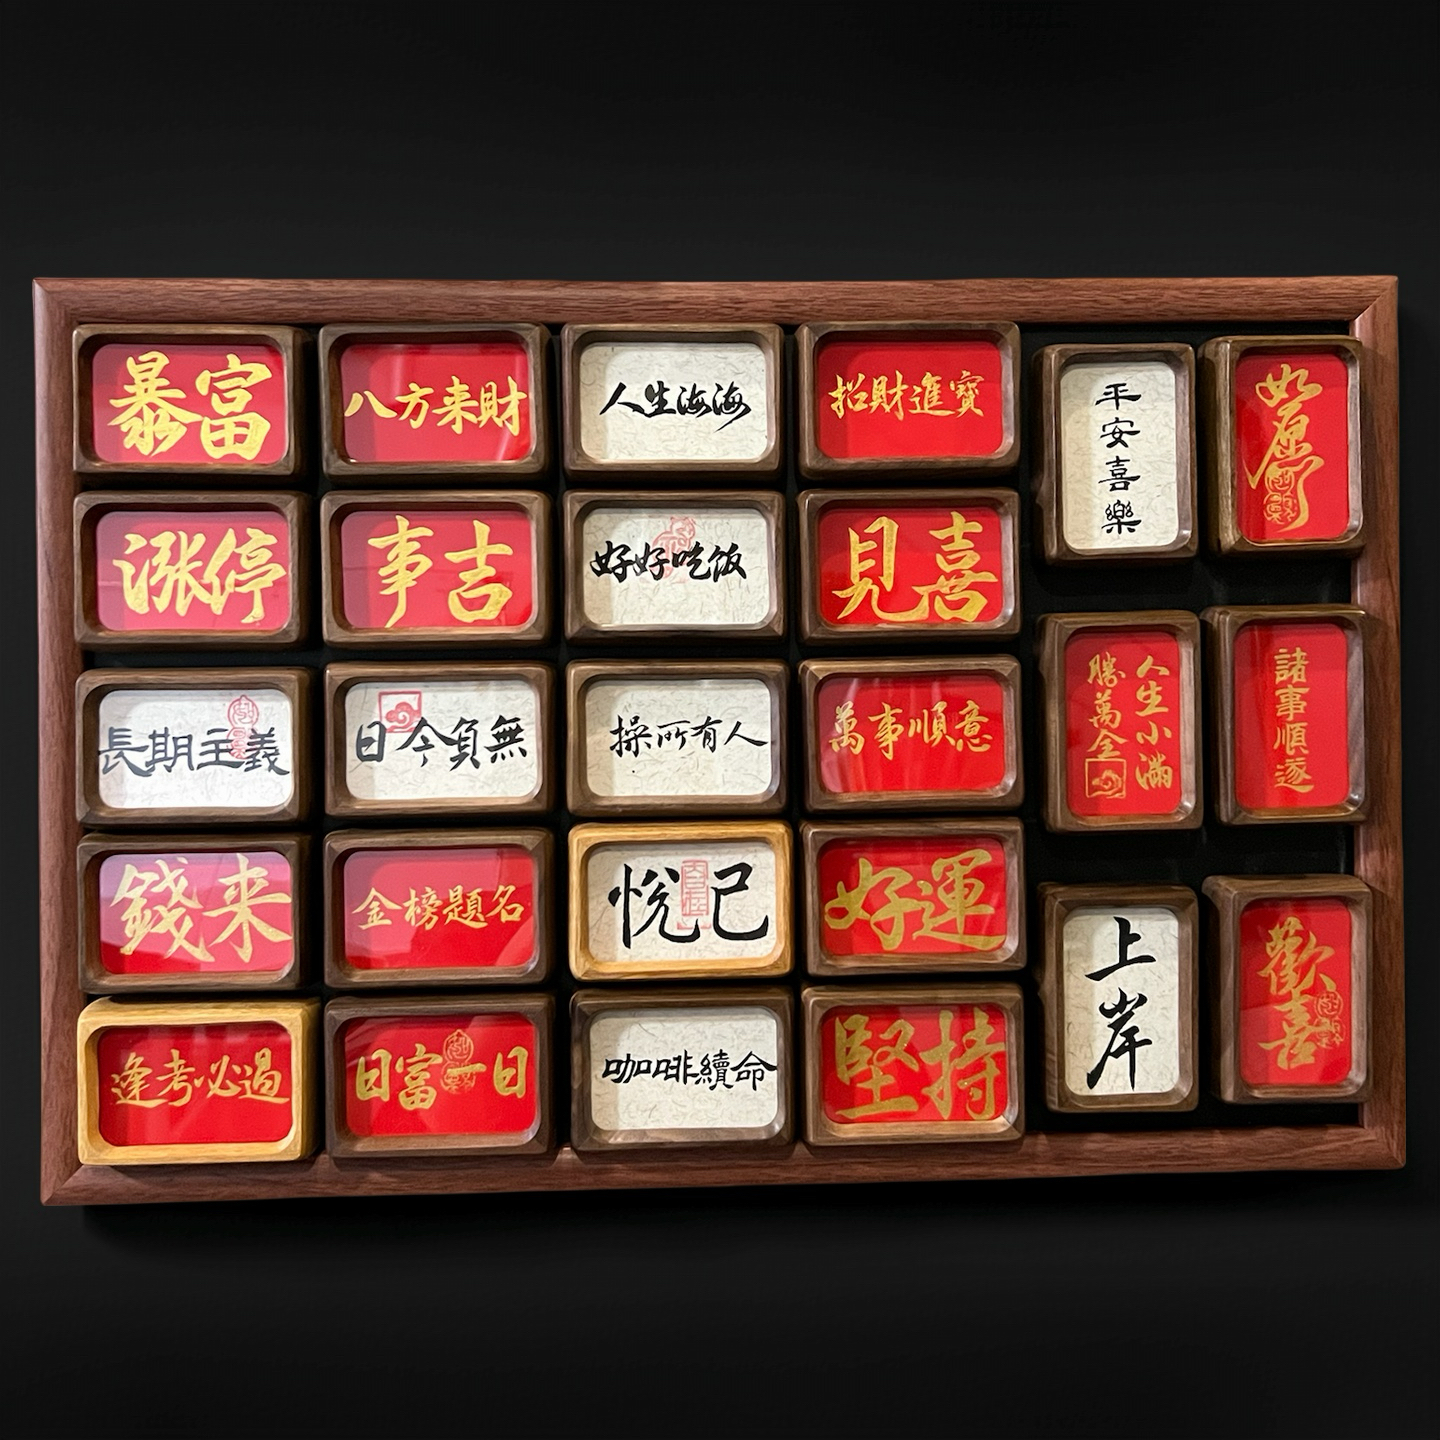 暴富
八方来财
人生海海
招財進寶
涨停
事吉
好好吃饭
見喜
長期主義
日今負無
操所有人
萬事順意
錢来
金榜題名
悦己
好運
逢考必過
日富一日
咖啡續命
堅持
平安喜樂
如愿
人生小滿
勝萬全
諸事順遂
上岸
歡喜